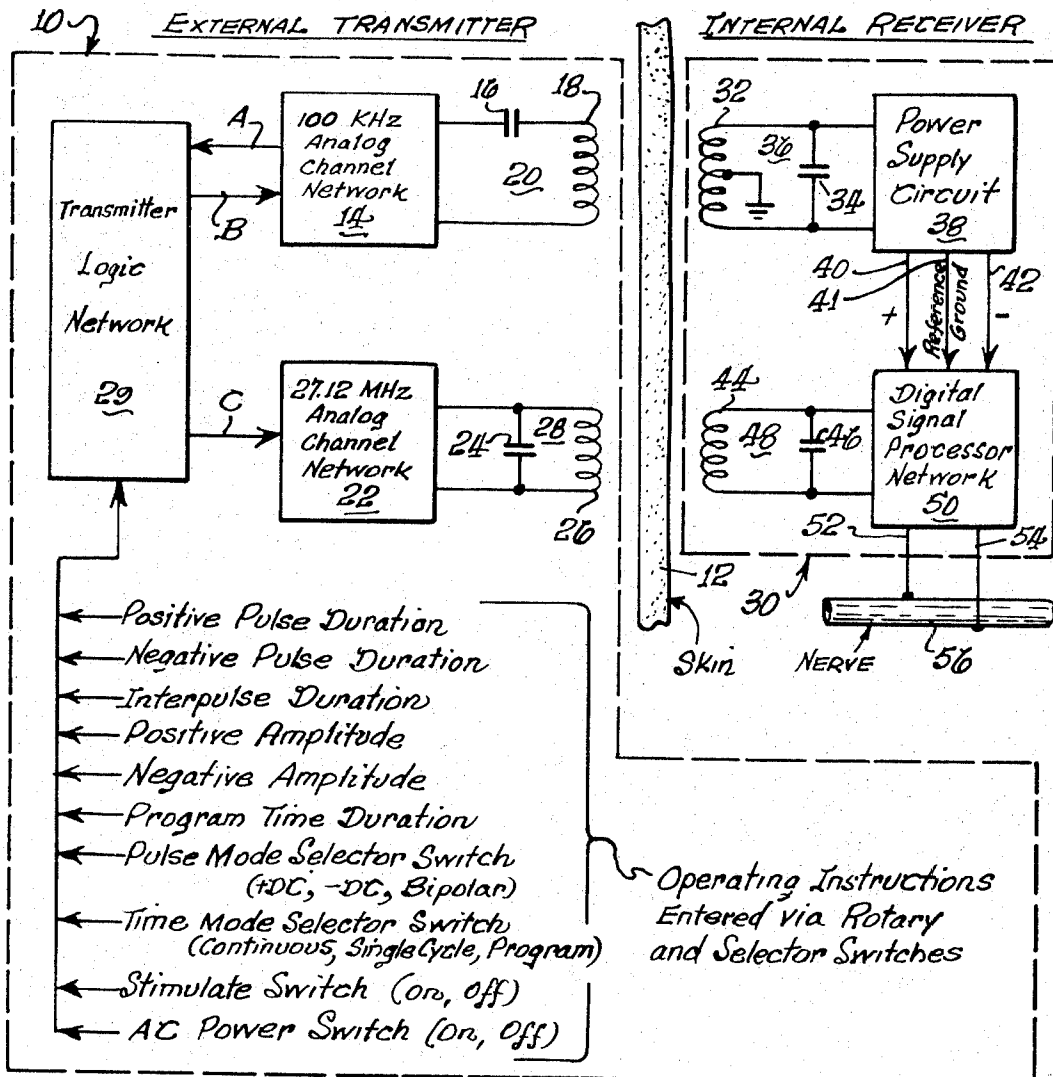 10
EXTERNAL TRANSMITTER
INTERNAL RECEIVER
Transmitter
Logic
Network
29
A
B
C
100 KHz
Analog
Channel
Network
14
16
18
20
27.12 MHz
Analog
Channel
Network
22
24
28
26
32
36
34
Power
Supply
Circuit
38
40
41
42
+
Reference
Ground
-
44
48
46
Digital
Signal
Processor
Network
50
52
54
30
12
Skin
NERVE
56
Positive Pulse Duration
Negative Pulse Duration
Interpulse Duration
Positive Amplitude
Negative Amplitude
Program Time Duration
Pulse Mode Selector Switch
(+DC, -DC, Bipolar)
Time Mode Selector Switch
(Continuous, Single Cycle, Program)
Stimulate Switch (On, Off)
AC Power Switch (On, Off)
Operating Instructions
Entered via Rotary
and Selector Switches